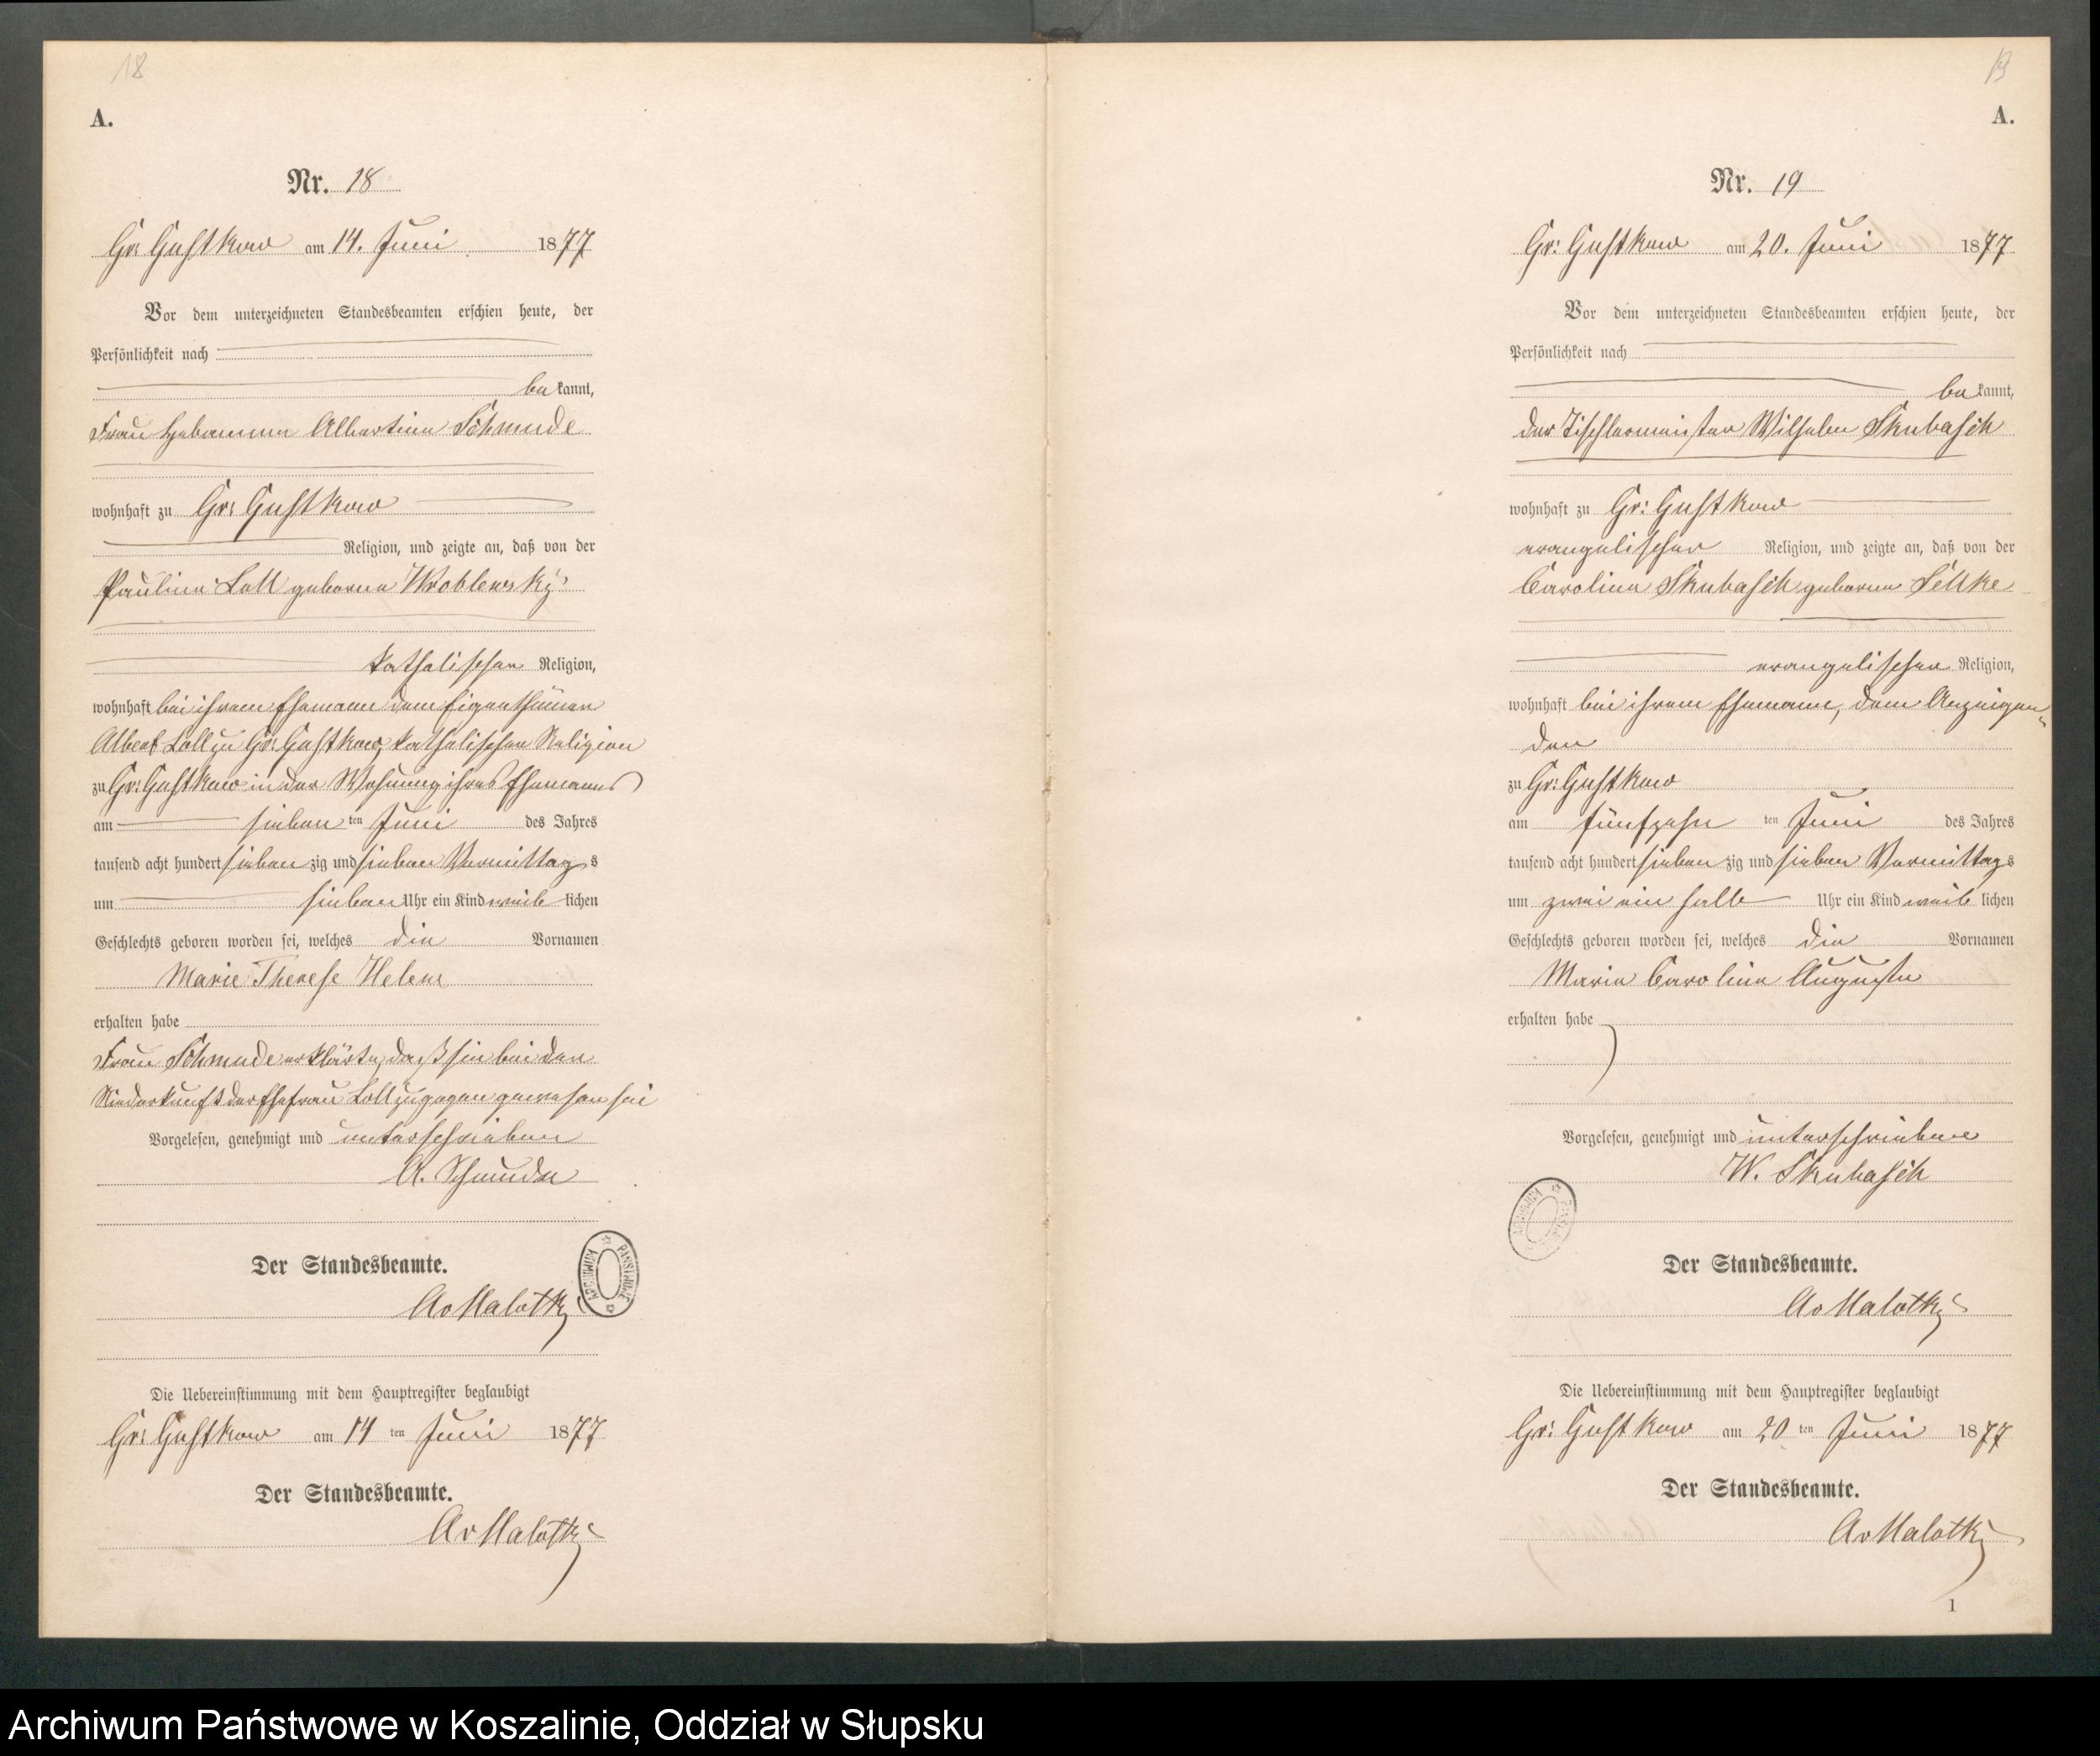 18
A.
Nr. 18
Gr: Gustkow am 14. Juni 1877
Vor dem unterzeichneten Standesbeamten erschien heute, der
Persönlichkeit nach
bekannt,
Frau Hebamme Albertine Schmude
wohnhaft zu Gr: Gustkow
Religion, und zeigte an, daß von der
Pauline Loll geborne Wroblewsky
katholischer Religion,
wohnhaft bei ihrem Ehemann dem Eigenthümer
Albert Loll zu Gr: Gustkow, katholischer Religion
zu Gr: Gustkow in der Wohnung ihres Ehemanns
am sieben ten Juni des Jahres
tausend acht hundert siebenzig und sieben Vormittags
um sieben Uhr ein Kind weiblichen
Geschlechts geboren worden sei, welches die Vornamen
Marie Therese Helene
erhalten habe
Frau Schmude erklärte, daß sie bei der
Niederkunft der Ehefrau Loll zugegen gewesen sei
Vorgelesen, genehmigt und unterschrieben
A. Schmude
Der Standesbeamte.
AvMalotky
ARCHIWUM PAŃSTWOWE
Die Uebereinstimmung mit dem Hauptregister beglaubigt
Gr: Gustkow am 14 ten Juni 1877
Der Standesbeamte.
AvMalotky
19
A.
Nr. 19
Gr: Gustkow am 20. Juni 1877
Vor dem unterzeichneten Standesbeamten erschien heute, der
Persönlichkeit nach
bekannt,
der Tischlermeister Wilhelm Skubasch
wohnhaft zu Gr: Gustkow
evangelischer Religion, und zeigte an, daß von der
Caroline Skubasch geborne Sellke
evangelischer Religion,
wohnhaft bei ihrem Ehemanne, dem Anzeigen-
den
zu Gr: Gustkow
am fünfzehn ten Juni des Jahres
tausend acht hundert siebenzig und sieben Vormittags
um zwei ein halb Uhr ein Kind weiblichen
Geschlechts geboren worden sei, welches die Vornamen
Marie Caroline Auguste
erhalten habe
Vorgelesen, genehmigt und unterschrieben
W. Skubasch
Der Standesbeamte.
AvMalotky
Die Uebereinstimmung mit dem Hauptregister beglaubigt
Gr: Gustkow am 20 ten Juni 1877
Der Standesbeamte.
AvMalotky
1
Archiwum Państwowe w Koszalinie, Oddział w Słupsku